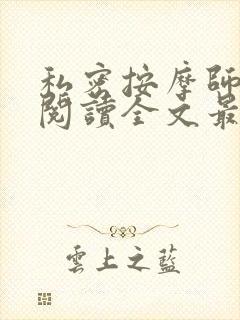 私密按摩師
閱讀全文最
雲上之藍